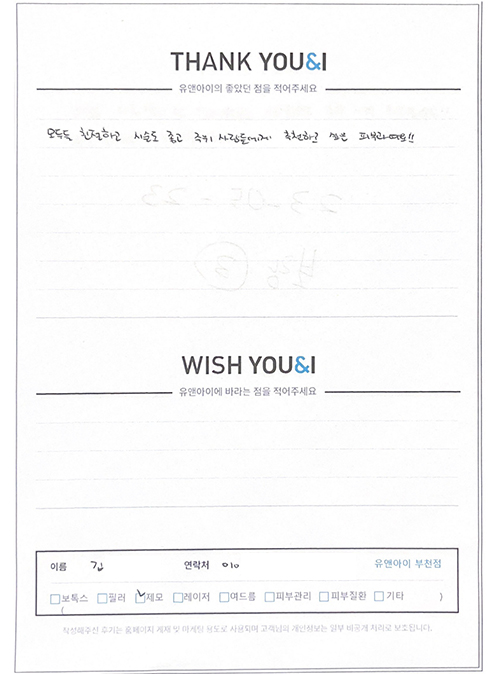 THANK YOU&I
유앤아이의 좋았던 점을 적어주세요
모두들 친절하고 시술도 좋고 주위 사람들에게 추천하고 싶은 피부과에요!!
WISH YOU&I
유앤아이에 바라는 점을 적어주세요
이름 김 연락처 010 유앤아이 부천점
보톡스 필러 제모 레이저 여드름 피부관리 피부질환 기타 )
(
작성해주신 후기는 홈페이지 게재 및 마케팅 용도로 사용되며 고객님의 개인정보는 일부 비공개 처리로 보호됩니다.